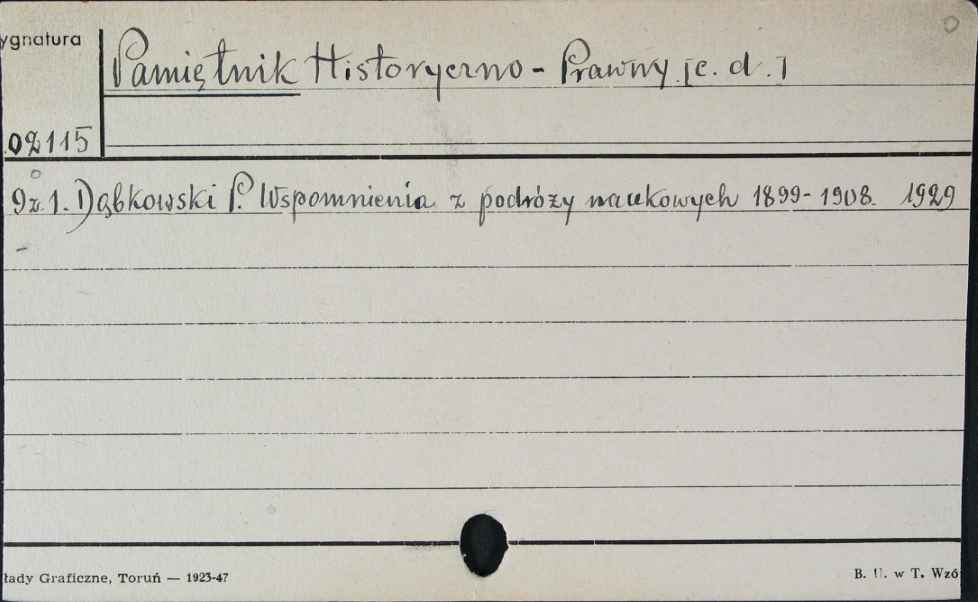 ygnatura
Pamiętnik Historyczno - Prawny [c. d.]
02115
9z.1. Dąbkowski P. Wspomnienia z podróży naukowych 1899-1908. 1929
łady Graficzne, Toruń — 1923-47
B. U. w T. Wzó